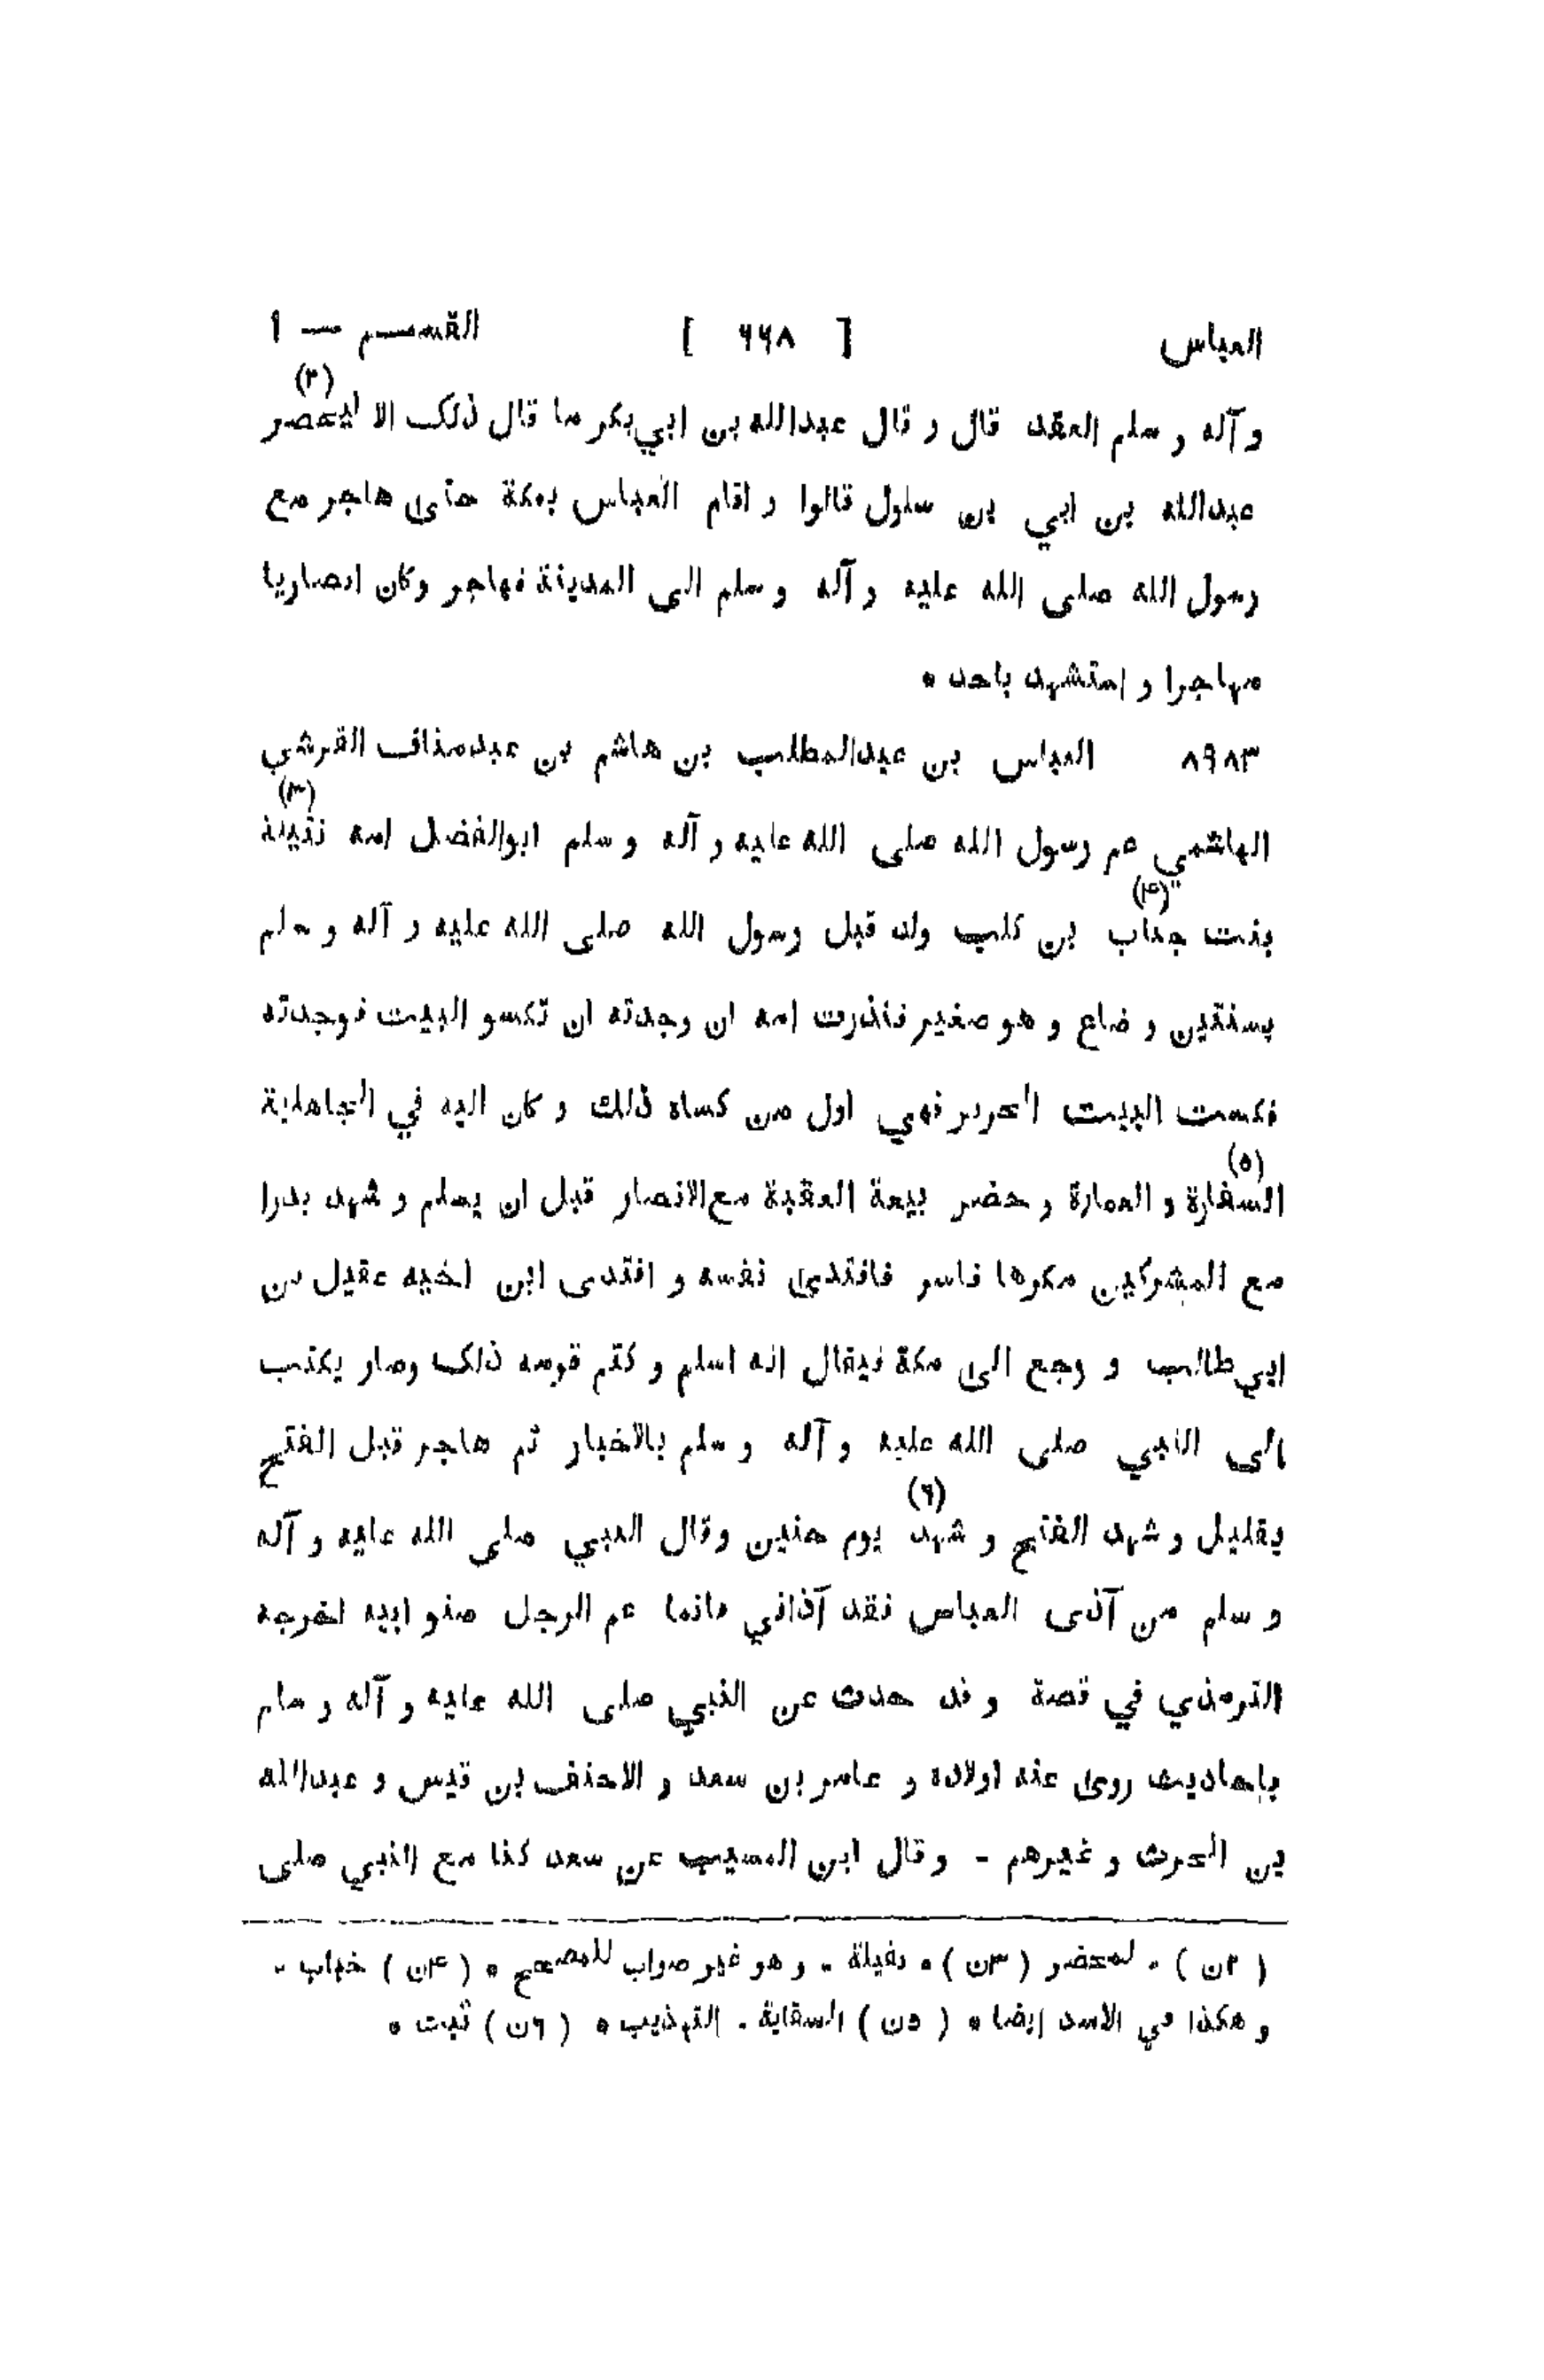 العباس [ ٦٦٨ ] القسم — ١
وآله و سلم العقد قال و قال عبدالله بن ابي بكر ما قال ذلك الا ليحضر (٢)
عبدالله بن ابي بن سلول قالوا و اقام العباس بمكة حتى هاجر مع
رسول الله صلى الله عليه و آله و سلم الى المدينة فهاجر وكان انصاريا
مهاجرا و استشهد باحد *
٨٩٨٣ العباس بن عبدالمطلب بن هاشم بن عبدمناف القرشي
الهاشمي عم رسول الله صلى الله عليه و آله و سلم ابوالفضل امه نتيلة (٣)
بنت جناب (٤) بن كلب ولد قبل رسول الله صلى الله عليه و آله و سلم
بسنتين و ضاع و هو صغير فنذرت امه ان وجدته ان تكسو البيت فوجدته
فكست البيت الحرير فهي اول من كساه ذلك و كان اليه في الجاهلية
السفارة (٥) و العمارة و حضر بيعة العقبة مع الانصار قبل ان يسلم و شهد بدرا
مع المشركين مكرها فاسر فافتدى نفسه و افتدى ابن اخيه عقيل بن
ابي طالب و رجع الى مكة فيقال انه اسلم و كتم قومه ذلك وصار يكتب
الى النبي صلى الله عليه و آله و سلم بالاخبار ثم هاجر قبل الفتح
بقليل و شهد الفتح و شهد (٦) يوم حنين وقال النبي صلى الله عليه و آله
و سلم من آذى العباس فقد آذاني فانما عم الرجل صنو ابيه اخرجه
الترمذي في قصة و قد حدث عن النبي صلى الله عليه و آله و سلم
باحاديث روى عنه اولاده و عامر بن سعد و الاحنف بن قيس و عبدالله
بن الحرث و غيرهم - وقال ابن المسيب عن سعد كنا مع النبي صلى
( ٢ن ) * لمحضر ( ٣ن ) * نفيلة - و هو غير صواب للمصحح * ( ٤ن ) خباب -
و هكذا في الاسد ايضا * ( ٥ن ) السقاية - التهذيب * ( ٦ن ) ثبت *